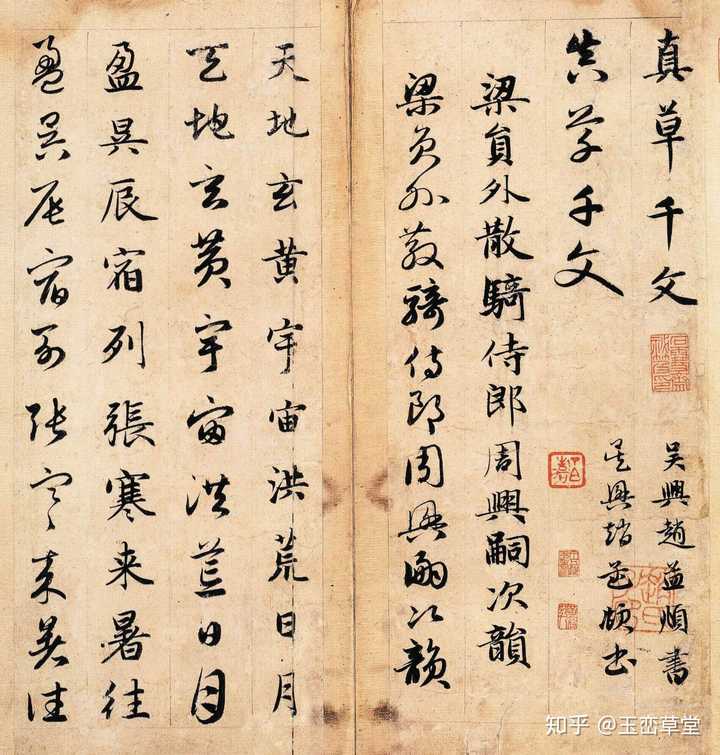 真草千文
吴興趙孟頫書
真草千文
吴興趙孟頫書
梁員外散騎侍郎周興嗣次韻
梁員外散騎侍郎周興嗣次韻
天地玄黄宇宙洪荒日月
天地玄黄宇宙洪荒日月
盈昃辰宿列張寒来暑往
盈昃辰宿列張寒来暑往
知乎 @玉峦草堂